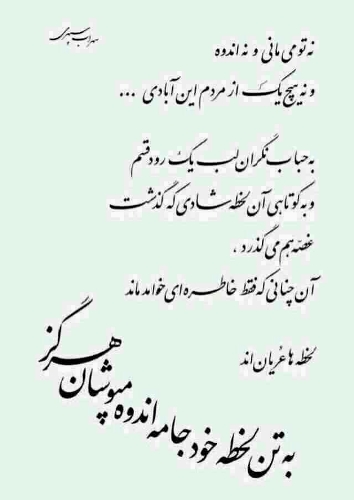 سهراب سپهری
نه تو می مانی و نه اندوه
و نه هیچ یک از مردم این آبادی ...
به حباب نگران لب یک رود قسم
و به کوتاهی آن لحظه شادی که گذشت
غصّه هم می گذرد .
آن چنانی که فقط خاطره ای خواهد ماند
لحظه ها عُریان اند
به تن لحظه خود جامه اندوه مپوشان هرگز